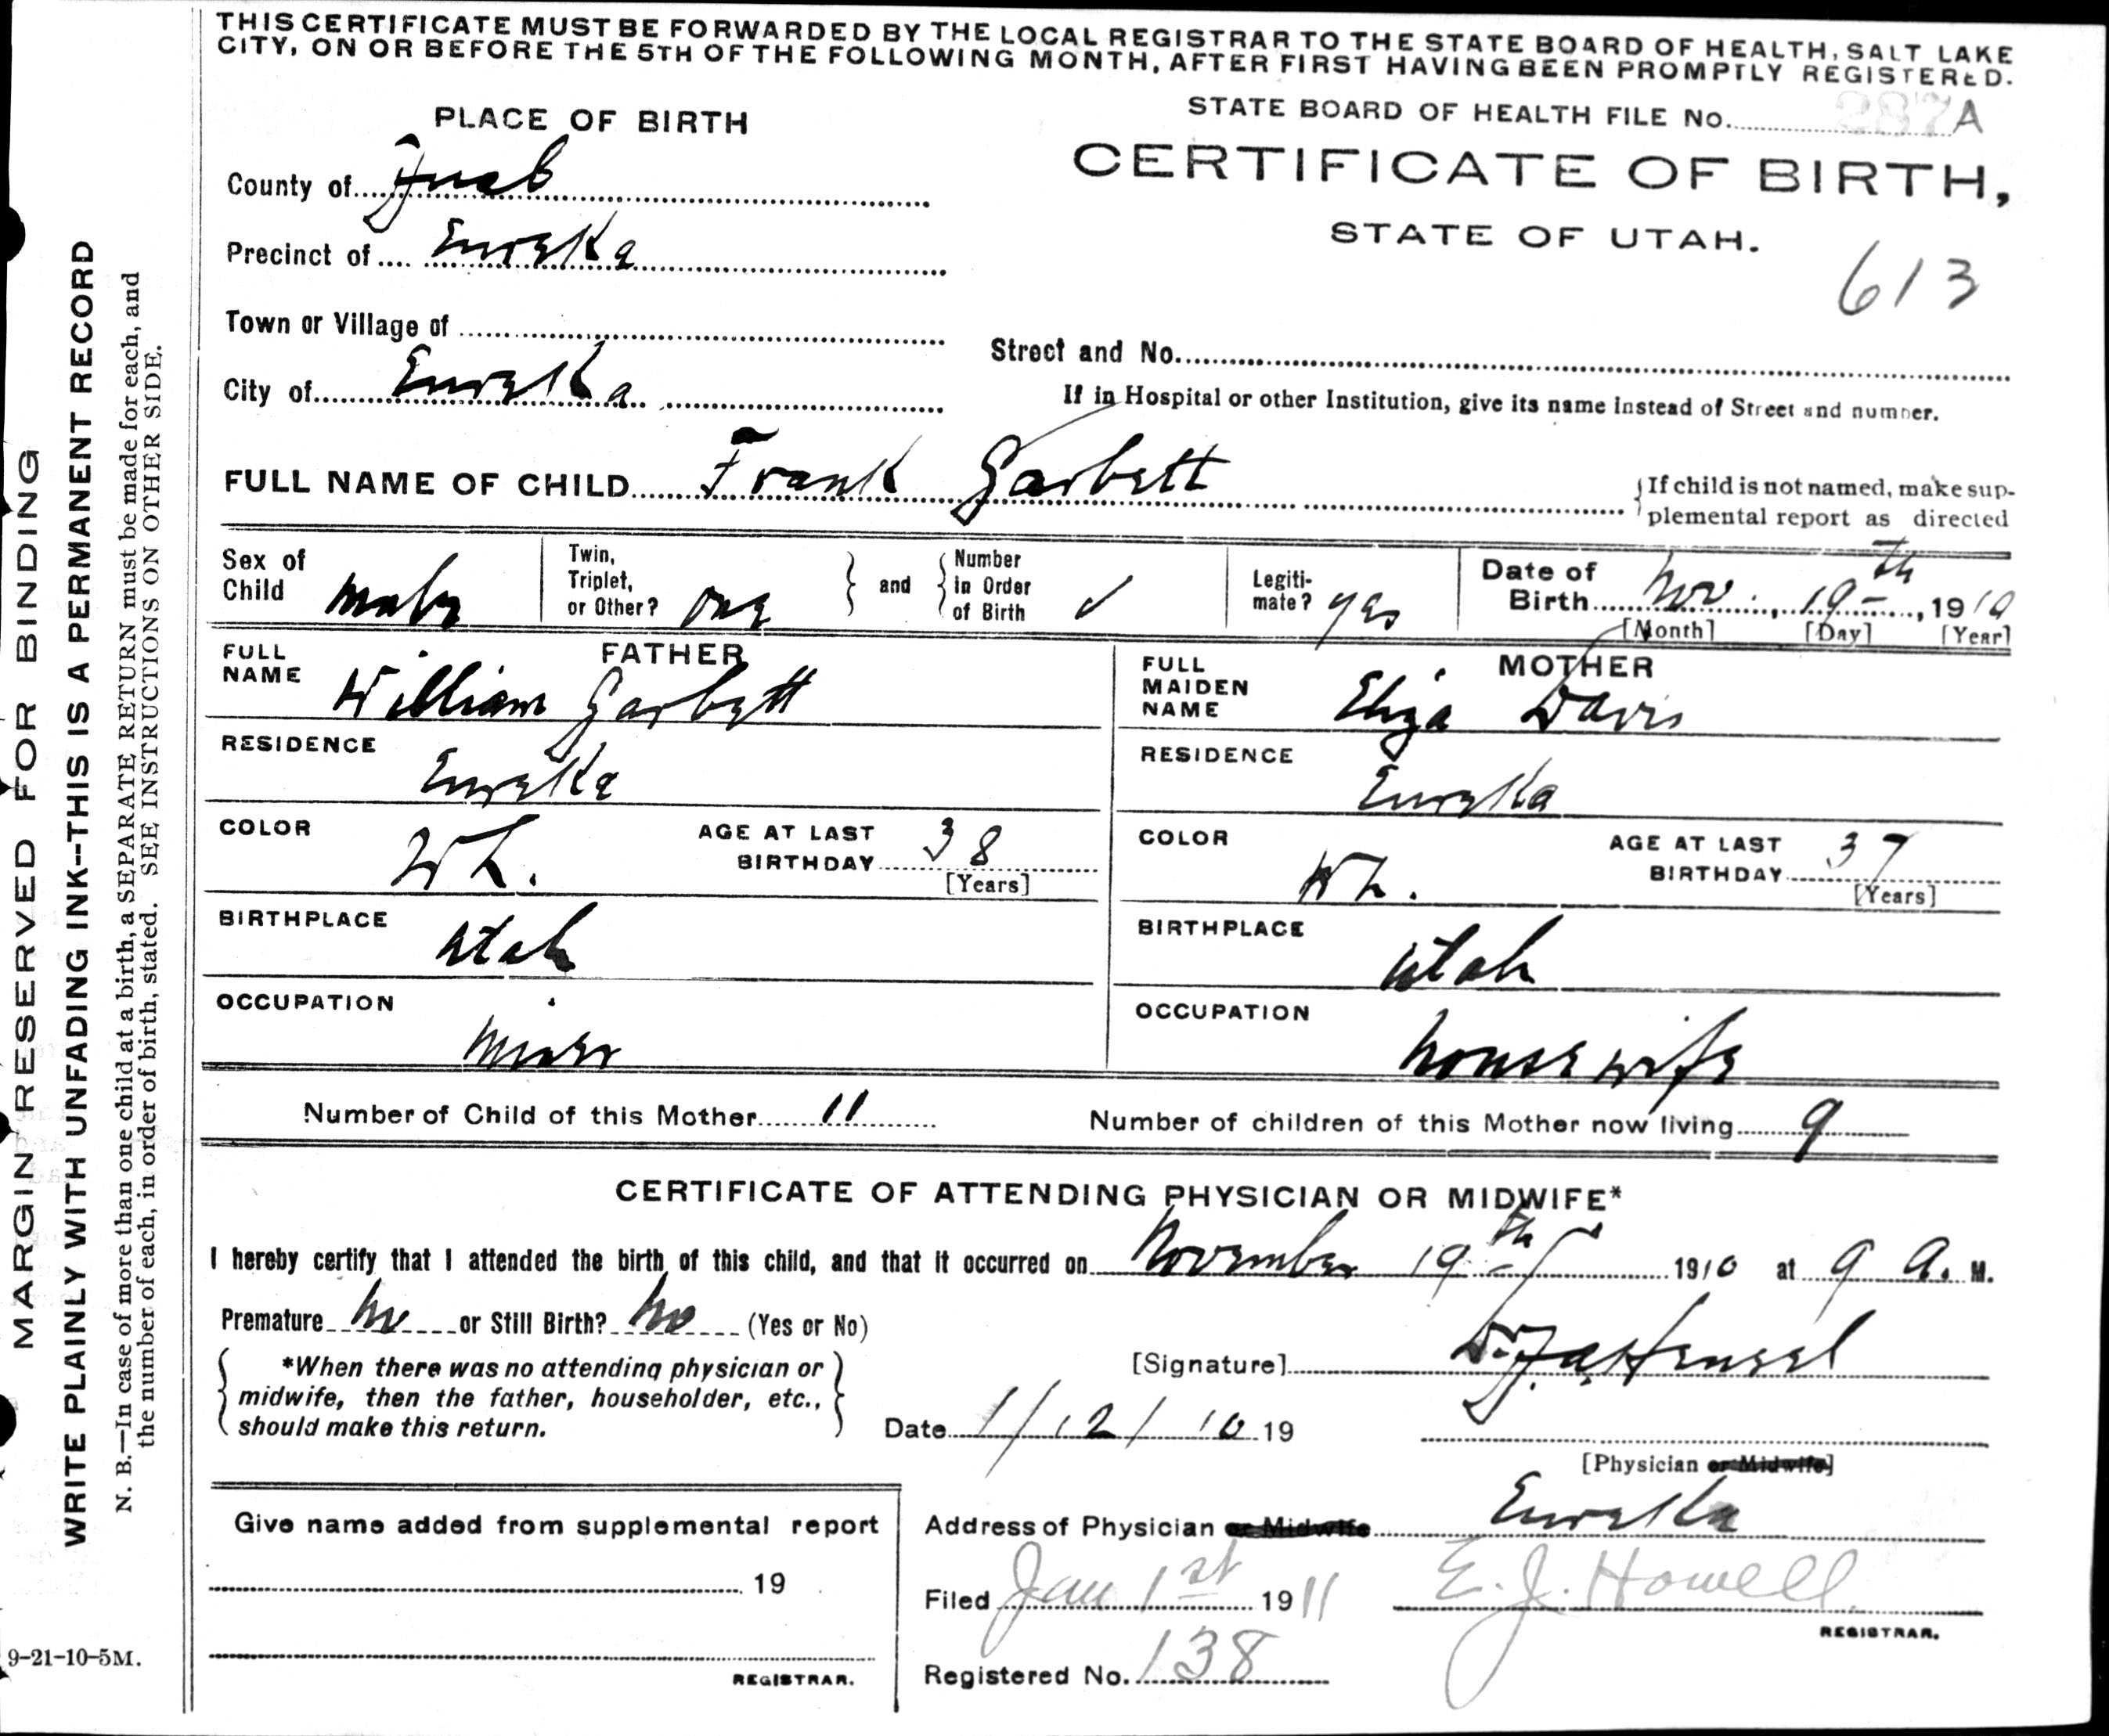 THIS CERTIFICATE MUST BE FORWARDED BY THE LOCAL REGISTRAR TO THE STATE BOARD OF HEALTH, SALT LAKE
CITY, ON OR BEFORE THE 5TH OF THE FOLLOWING MONTH, AFTER FIRST HAVING BEEN PROMPTLY REGISTERED.
STATE BOARD OF HEALTH FILE No. 287A
CERTIFICATE OF BIRTH,
STATE OF UTAH.
613
PLACE OF BIRTH
County of Juab
Precinct of Eureka
Town or Village of
City of Eureka
Street and No.
If in Hospital or other Institution, give its name instead of Street and number.
FULL NAME OF CHILD Frank Garbett
{If child is not named, make sup-
plemental report as directed
Sex of Child male
Twin, Triplet, or Other? one } and { Number in Order of Birth ✓
Legiti-mate? yes
Date of Birth Nov. 19th, 1910
[Month] [Day] [Year]
FATHER
FULL NAME William Garbett
RESIDENCE Eureka
COLOR Wh. AGE AT LAST BIRTHDAY 38
[Years]
BIRTHPLACE Utah
OCCUPATION Miner
MOTHER
FULL MAIDEN NAME Eliza Davis
RESIDENCE Eureka
COLOR Wh. AGE AT LAST BIRTHDAY 37
[Years]
BIRTHPLACE Utah
OCCUPATION housewife
Number of Child of this Mother 11 Number of children of this Mother now living 9
CERTIFICATE OF ATTENDING PHYSICIAN OR MIDWIFE*
I hereby certify that I attended the birth of this child, and that it occurred on November 19th 1910 at 9 A. M.
Premature No or Still Birth? No (Yes or No)
{ *When there was no attending physician or
midwife, then the father, householder, etc.,
should make this return. }
[Signature] Hensel
Date 1/12/10 19
[Physician or Midwife]
Address of Physician or Midwife Eureka
Filed Jan 1st 1911 E. J. Howell
REGISTRAR.
Registered No. 138
Give name added from supplemental report
19
REGISTRAR.
MARGIN RESERVED FOR BINDING
WRITE PLAINLY WITH UNFADING INK--THIS IS A PERMANENT RECORD
N. B.—In case of more than one child at a birth, a SEPARATE RETURN must be made for each, and
the number of each, in order of birth, stated. SEE INSTRUCTIONS ON OTHER SIDE.
9-21-10-5M.